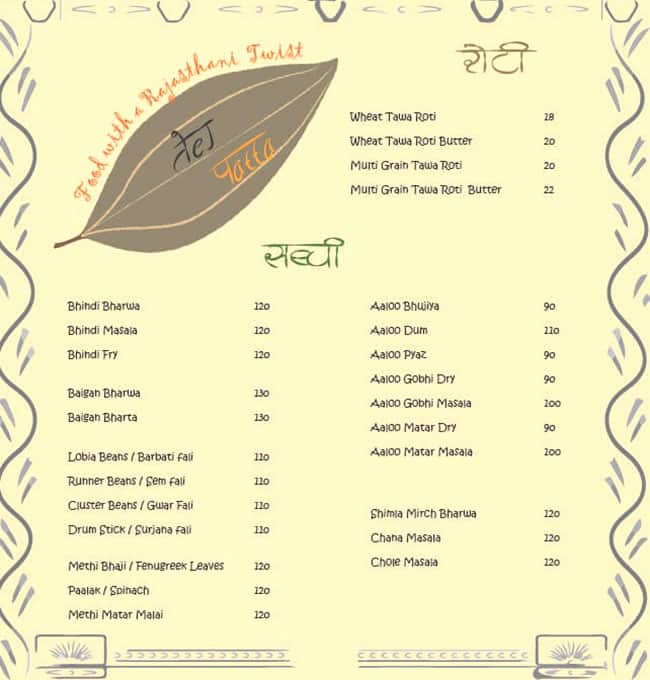 Food with a Rajasthani Twist
तेज
पत्ता
रोटी
Wheat Tawa Roti 18
Wheat Tawa Roti Butter 20
Multi Grain Tawa Roti 20
Multi Grain Tawa Roti Butter 22
सब्जी
Bhindi Bharwa 120
Bhindi Masala 120
Bhindi Fry 120
Baigan Bharwa 130
Baigan Bharta 130
Lobia Beans / Barbati fali 110
Runner Beans / Sem fali 110
Cluster Beans / Gwar Fali 110
Drum Stick / Surjana fali 110
Methi Bhaji / Fenugreek Leaves 120
Paalak / Spinach 120
Methi Matar Malai 120
Aaloo Bhujiya 90
Aaloo Dum 110
Aaloo Pyaz 90
Aaloo Gobhi Dry 90
Aaloo Gobhi Masala 100
Aaloo Matar Dry 90
Aaloo Matar Masala 100
Shimla Mirch Bharwa 120
Chana Masala 120
Chole Masala 120